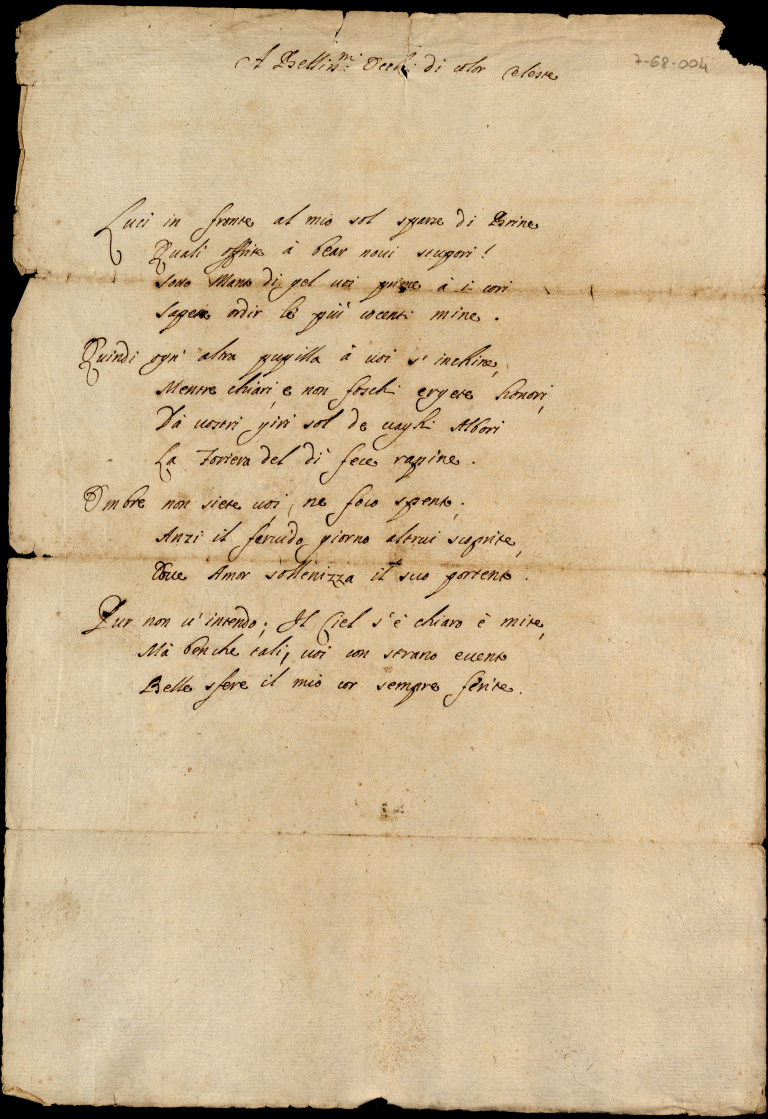 A Bellis.mi Occhi di color celeste
7-68-004
Luci in fronte al mio sol sparze di Brine
Quali offrite à bear noui stupori!
Sotto Manto di gel uoi prime à i cori
Sapete ordir le piu' cocenti mine.
Quindi ogn' altra pupilla à uoi s' inchine,
Mentre chiari, e non foschi ergete honori,
Dà uostri giri sol de uaghi Albori
La Foriera del di' fece rapine.
Ombre non siete uoi, ne foco spento;
Anzi il feruido giorno altrui scoprite,
Doue Amor sollenizza il suo portento.
Pur non u' intendo; Il Ciel s' è chiaro è mite,
Mà benche tali, uoi con strano euento
Belle sfere il mio cor sempre ferite.